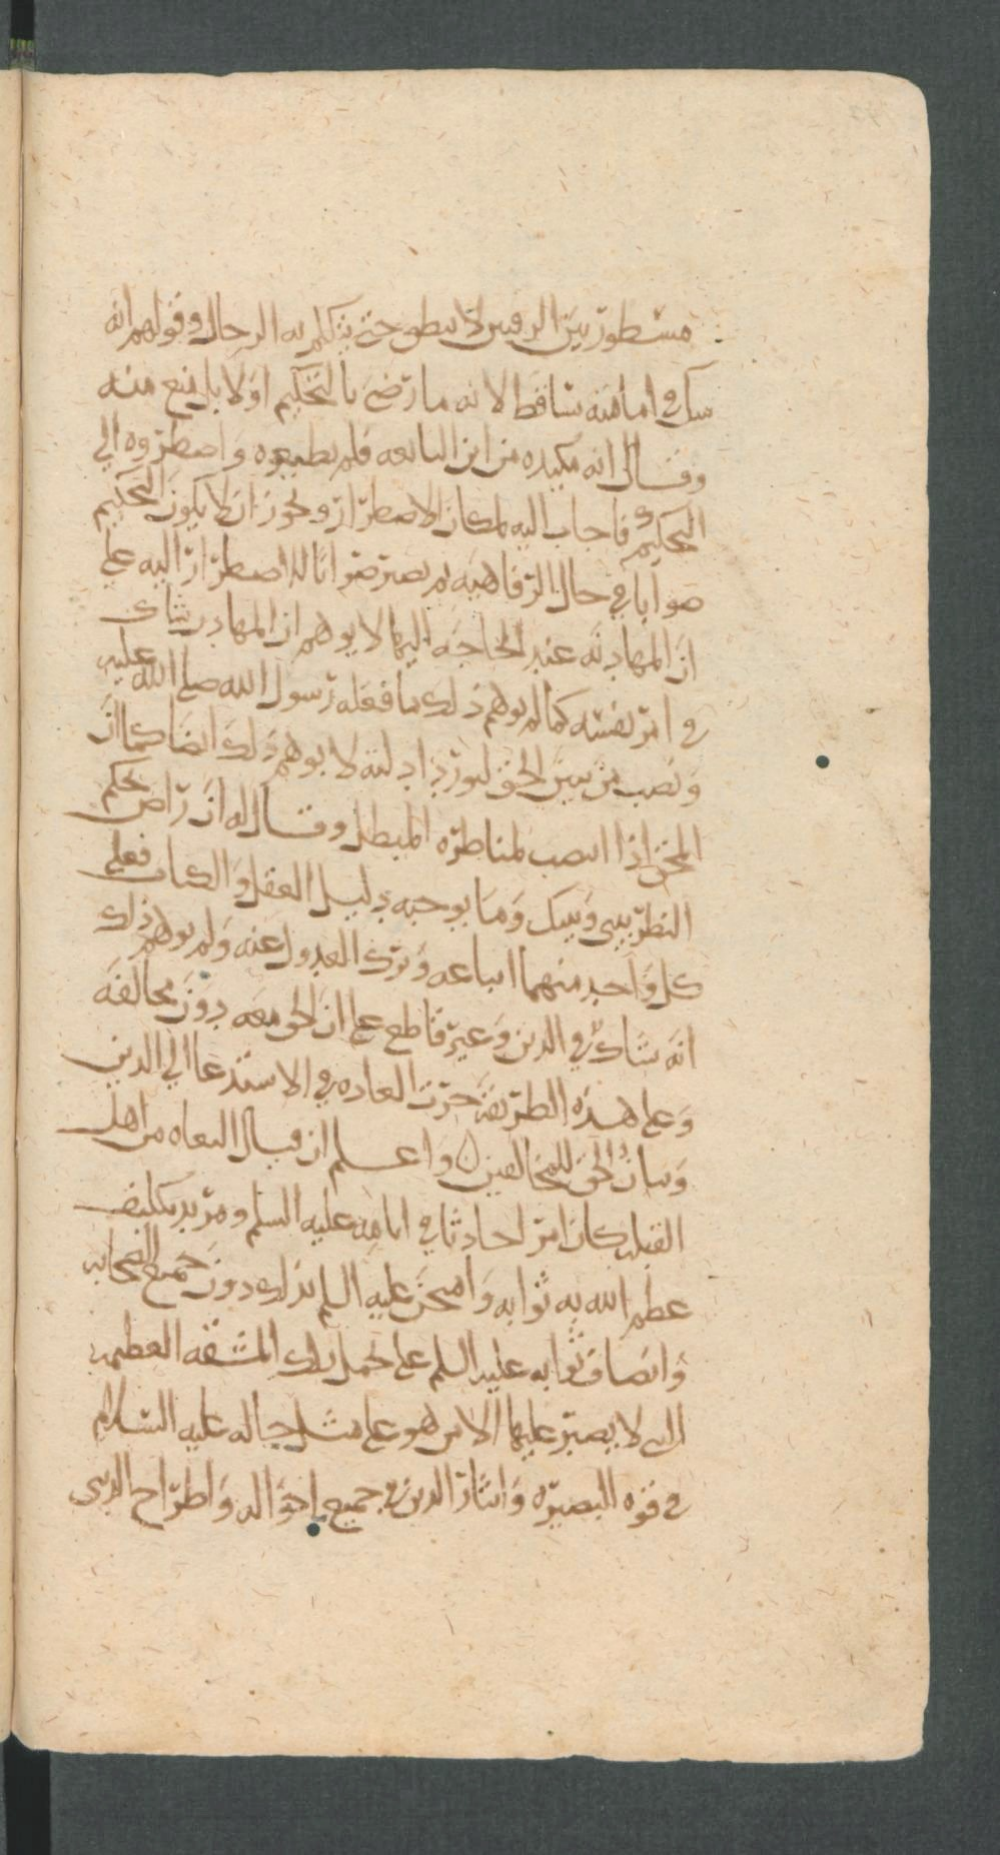 مسطور بين الدفتين لا ينطق حتى يتكلم به الرجال وقولهم انه
شك في امامته ساقط لانه ما رضي بالتحكيم اولا بل منع منه
وقال انه مكيده من ابن النابغه فلم يطيعوه واضطروه الي
التحكيم فاجاب اليه لمكان الاضطرار ويجوز ان لا يكون التحكيم
صوابا في حال الرفاهيه ثم يصير صوابا للاضطرار اليه علي
ان المهادنه عند الحاجه اليها لا يوهم ان المهادن شاك
في امر نفسه كما لم يوهم ذلك ما فعله رسول الله صلى الله عليه
ونصب من يبين الحق ليورد ادلته لا يوهم ذلك ايضا كما ان
المحق اذا انتصب لمناظره المبطل وقال له ان راض بحكم
النظر بيني وبينك وما يوجبه دليل العقل والكتاب فعلي
كل واحد منهما اتباعه وترك العدول عنه ولم يوهم ذلك
انه شاك في الدين وغير قاطع علي ان الحق معه دون مخالفه
وعلي هذه الطريقه جرت العاده في الاستدعا الي الدين
وبيان الحق للمخالفين واعلم ان قتال البغاه من اهل
القبله كان امرا حادثا في ايامه عليه السلم ومزيد تكليف
عظم الله به ثوابه وامتحن عليه السلم بذلك دون جميع الصحابه
وانضاف ثوابه عليه السلم علي تحمل تلك المشقه العظيمه
التي لا يصبر عليها الا من هو علي مثل حاله عليه السلام
في قوه البصيره وايثار الدين في جميع احواله واطراح الدنيا